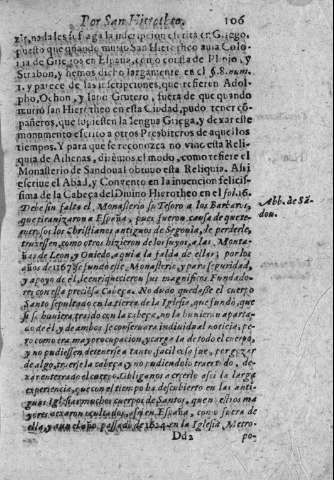 Por San Hierotheo. 106
zir, nada les sufraga la inscripcion escrita en Griego,
puesto que quando murió San Hierotheo auia Colo-
nia de Griegos en España, como consta de Plinio, y
Strabon, y hemos dicho largamente en el §.8. num.
1. y parece de las inscripciones, que refieren Adol-
pho, Ochon, y Iano Grutero, fuera de que quando
murió san Hierotheo en esta Ciudad, pudo tener có-
pañeros, que supiessen la lengua Griega, y dexar este
monumento escrito a otros Presbiteros de aquellos
tiempos. Y para que se reconozca no vino esta Reli-
quia de Athenas, diremos el modo, como refiere el
Monasterio de Sandoual obtuuo esta Reliquia. Assi
escriue el Abad, y Convento en la inuencion felicis-
sima de la Cabeça del Diuino Hierotheo en el fol. 16.
Abb. de Sã-
doual.
el Monasterio su Tesoro a los Barbaros,
que tiranizaron a España, pues fueron causa de que te-
merosos los Christianos antiguos de Segouia, de perderle,
truxessen, como otros hizieron de los suyos, a las Monta-
ñas de Leon, y Ouiedo, aquia la falda de ellas; por los
años de 1167 se fundó este Monasterio, y para seguridad,
y apoyo de él, le enriquecieron sus magnificos Fundado-
res con esta preciosa Cabeça. No dudo quedasse el cuerpo
Santo sepultado en la tierra de la Iglesia, que fundó, que
si se huuiera traido con la cabeça, no la huuieran aparta-
do de él, y de ambos se conseruara indiuidual noticia; pe-
ro como era mayor ocupacion, y carga la de todo el cuerpo,
y no pudiessen detenerse a tanto, facil cosa fue, por gozar
de algo, traerse la cabeça, y no pudiendolo traer todo, de-
xar enterrado el cuerpo. Obliganos a creerlo assi la larga
experiencia, que con el tiempo ha descubierto en las anti-
guas Iglesias muchos cuerpos de Santos, que nuestros ma-
yores dexaron ocultados, assi en España, como fuera de
ella, y aun el año passado de 1624. en la Iglesia Metro-
Dd2 po-